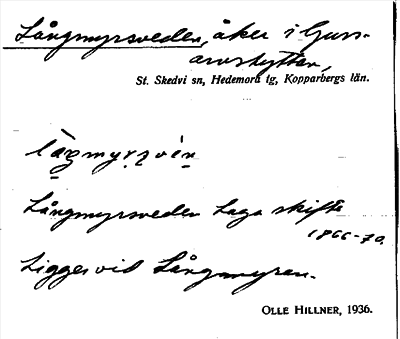 Långmyrsveden, åker i Gus-
arvshyttan,
St. Skedvi sn, Hedemora tg, Kopparbergs län.
Långmyrsveden Laga skifte
1866-70.
Ligger vid Långmyran.
OLLE HILLNER, 1936.